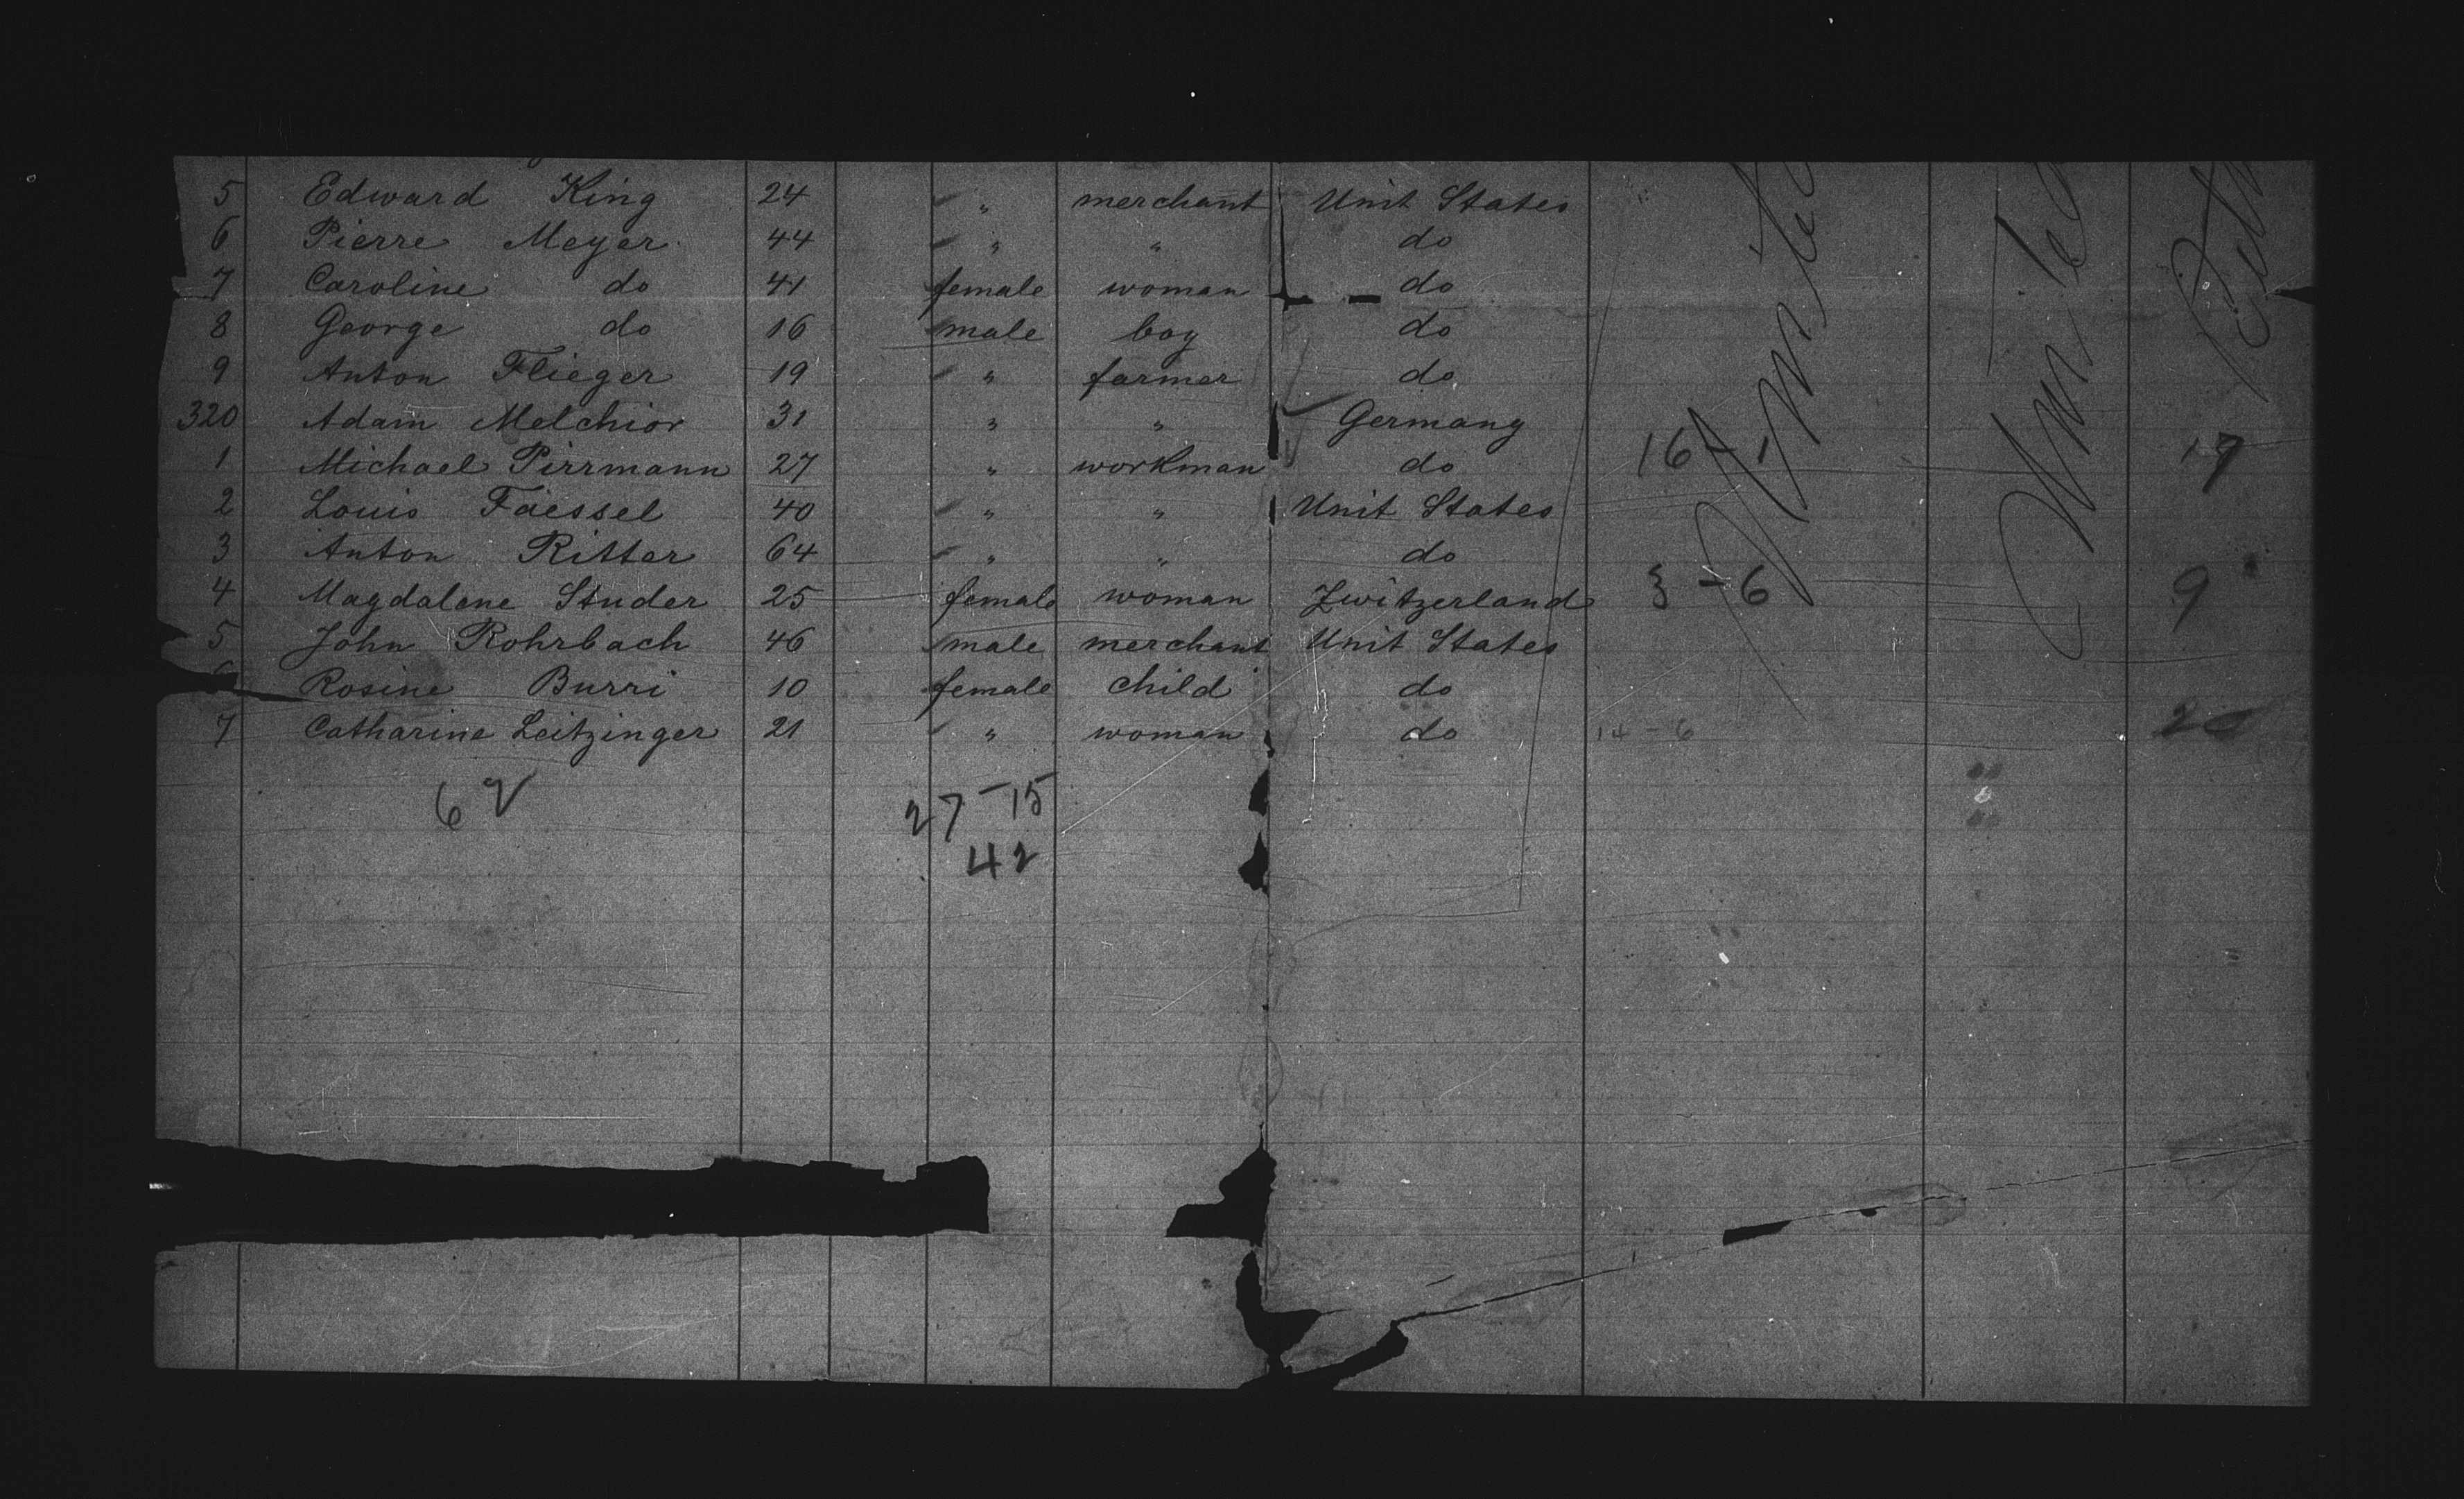 5 Edward King 24 " merchant Unit States
6 Pierre Meyer 44 " " do
7 Caroline do 41 female woman do
8 George do 16 male boy do
9 Anton Flieger 19 " farmer do
320 Adam Melchior 31 " " Germany
1 Michael Pirrmann 27 " workman do 16 - 1 17
2 Louis Faessel 40 " " Unit States
3 Anton Ritter 64 " " do
4 Magdalene Studer 25 female woman Zwitzerland 3 - 6 9
5 John Rohrbach 46 male merchant Unit States
Rosine Burri 10 female child do
7 Catharine Leitzinger 21 " woman do 14 - 6 20
62 27 - 15
42